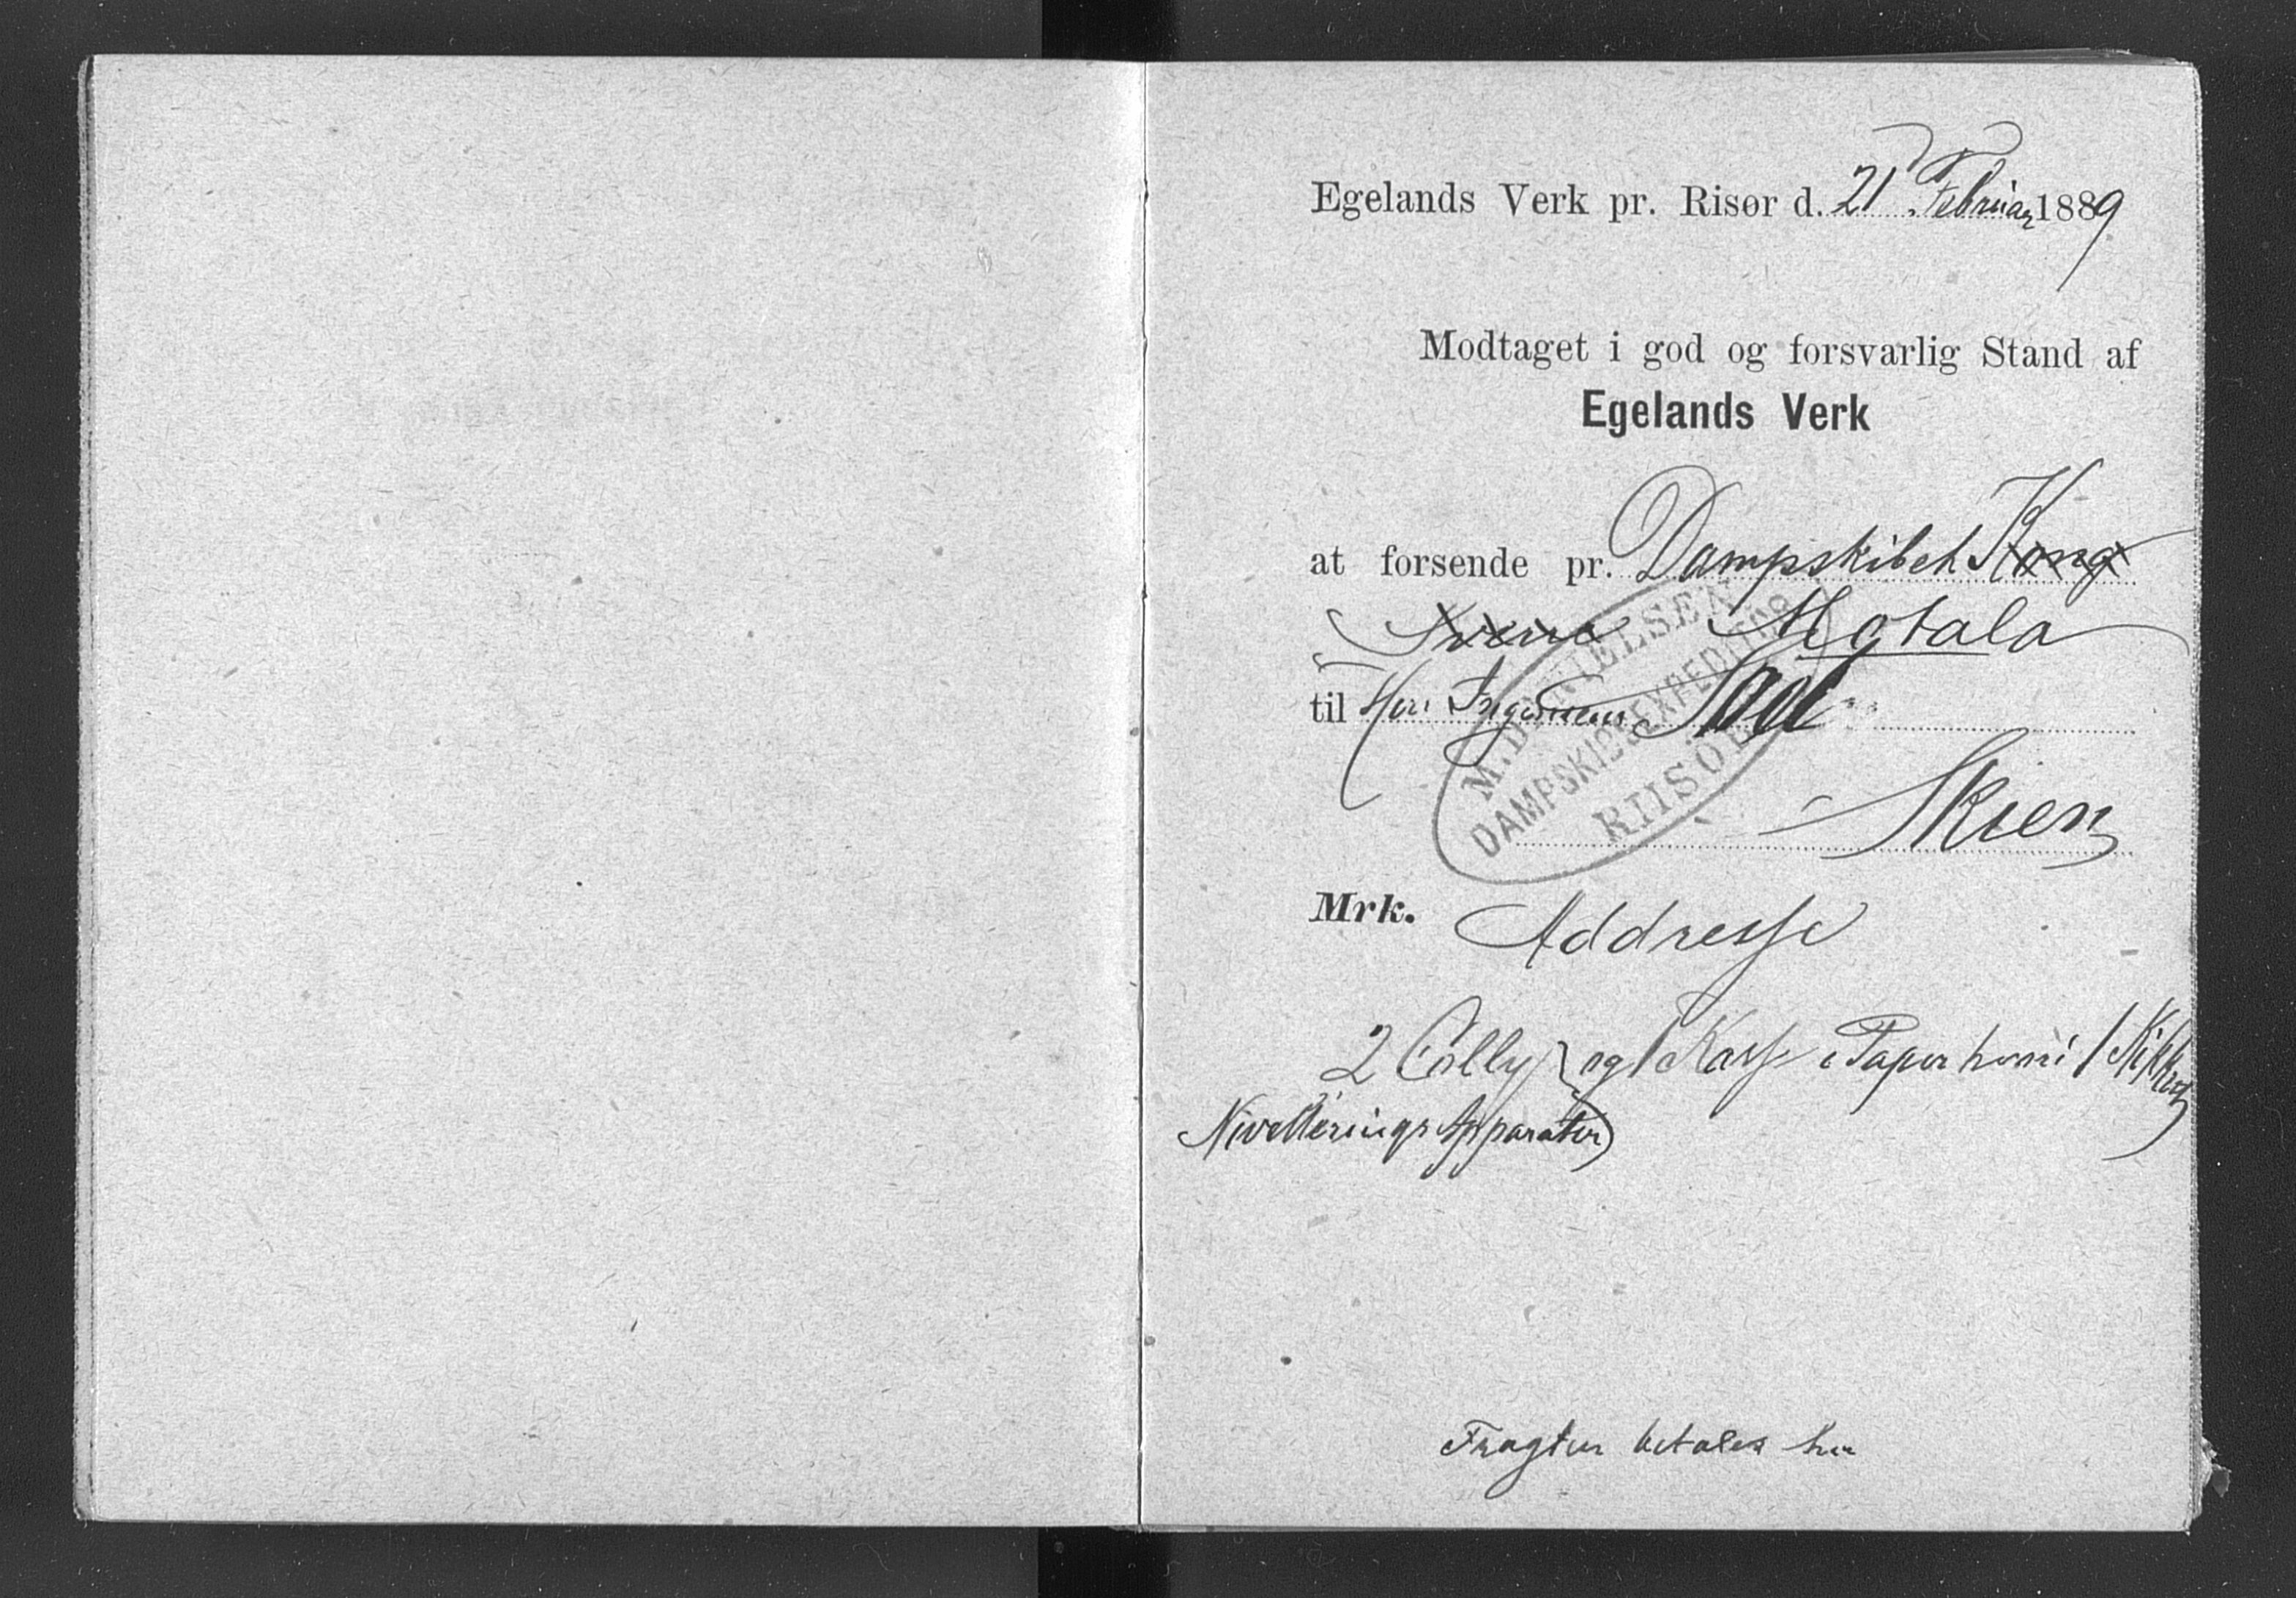 Egelands Verk pr. Risør d. 21 Februar 1889
Modtaget i god og forsvarlig Stand af
Egelands Verk
at forsende pr. Dampskibet Kong
Sverre Motala
til Herr Ingeniør
Skien
M. DANIELSEN
DAMPSKIBSEXPEDITIØR
RIISÖR
Mrk. Addresse
2 Colly og 1 Kasse 1 Kikkert
Nivellerings Apparater)
Fragten betales her